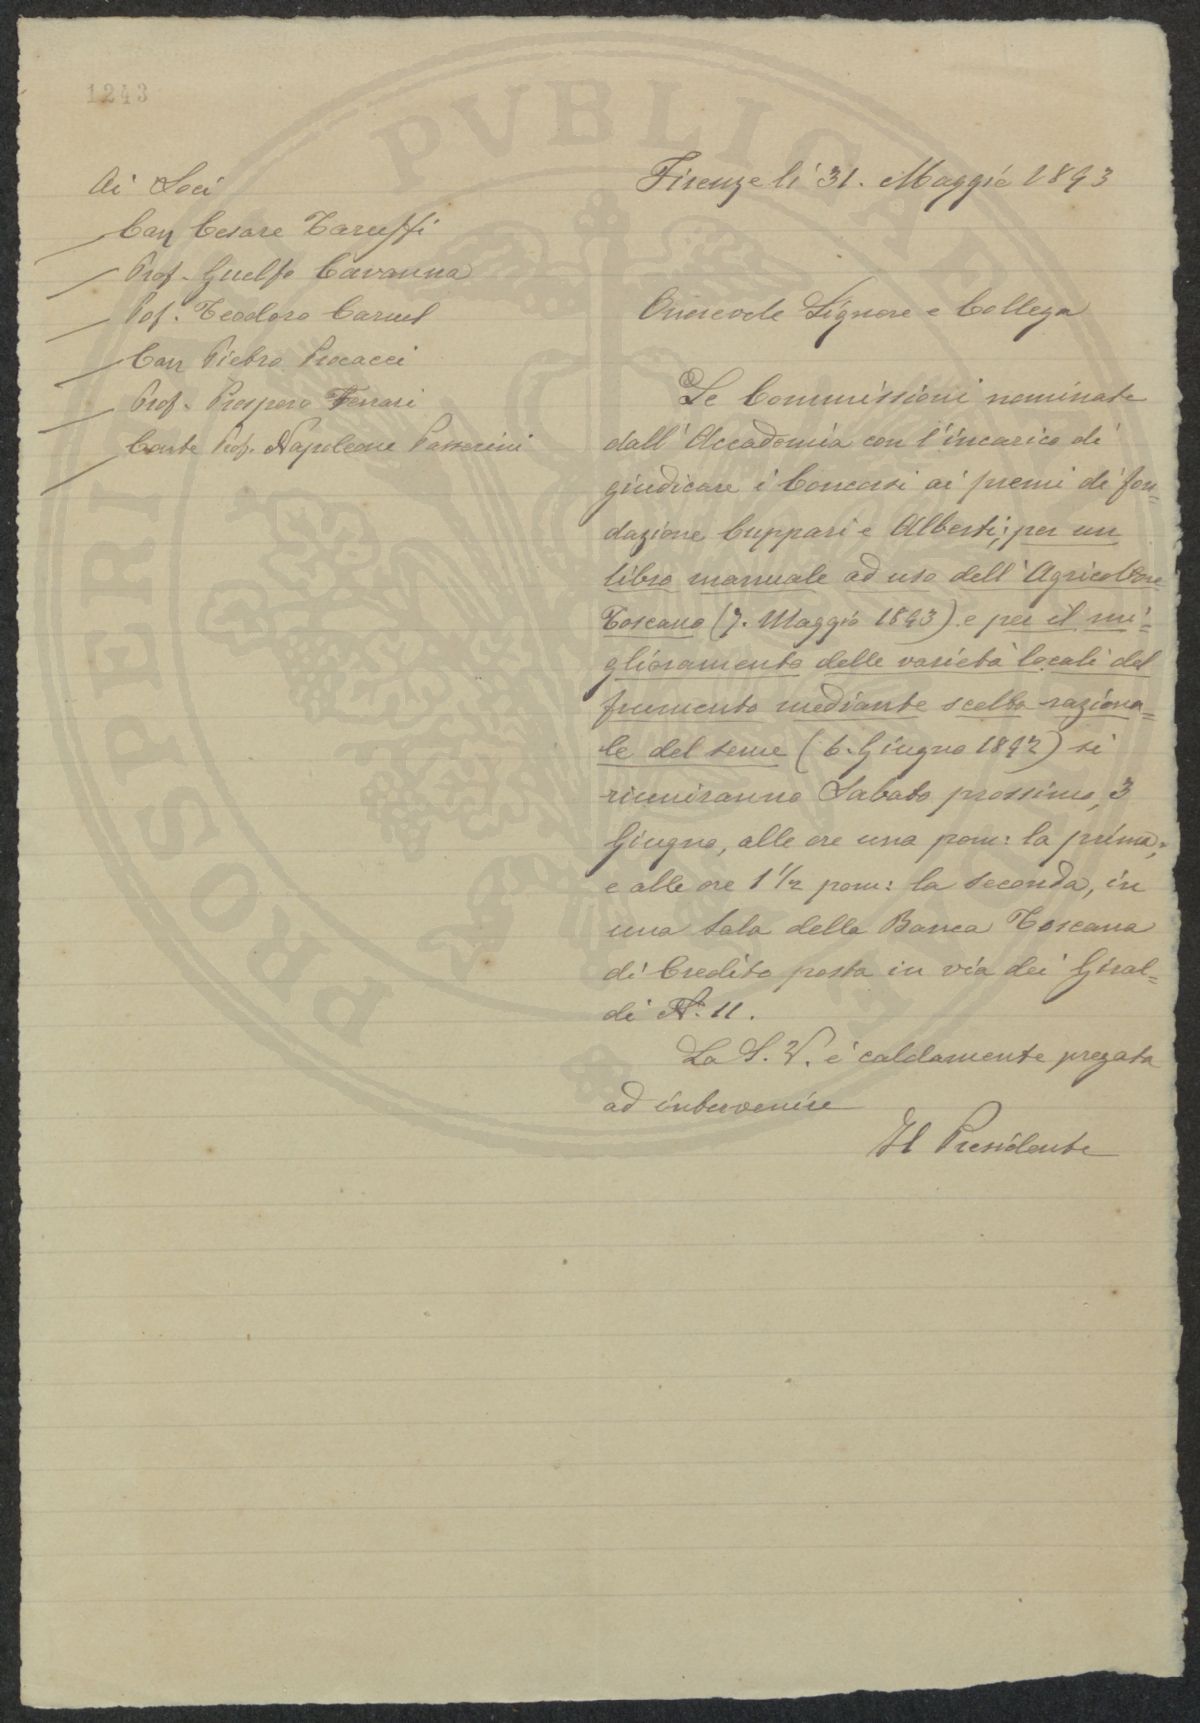 1243
Ai Soci
Cav Cesare Taruffi
Prof. Guelfo Cavanna
Pof. Teodoro Caruel
Cav Pietro Procacci
Prof. Prospero Ferrari
Conte Prof. Napoleone Passerini
Firenze li 31. Maggio 1893
Onorevole Signore e Collega
Le Commissioni nominate
dall'Accademia con l'incarico di
giudicare i Concorsi ai premi di fon=
dazione Cuppari e Alberti; per un
libro manuale ad uso dell'Agricoltore
Toscano (7. Maggio 1893) e per il mi=
glioramento delle varietà locali del
frumento mediante scelta raziona=
le del seme (6. Giugno 1892) si
riuniranno Sabato prossimo, 3
Giugno, alle ore una pom: la prima;
e alle ore 1 1/2 pom: la seconda, in
una sala della Banca Toscana
di Credito posta in via dei Giral=
di N.° 11.
La S. V. è caldamente pregata
ad intervenire
Il Presidente
PROSPERITATI PVBLICAE